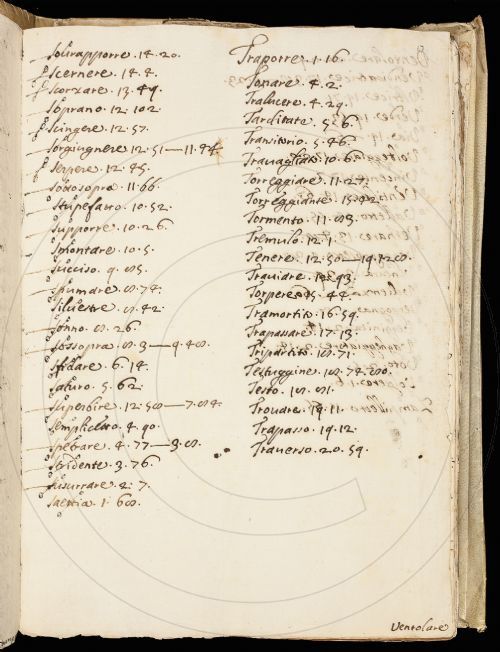 Sourapporre. 14. 20.
Scernere. 14. 4.
Scorzare. 13. 49.
Soprano. 12. 102.
Scingere. 12. 57.
Sorgiugnere. 12. 51 — 11. 44.
Serpere. 12. 45.
Sodosopra. 11. 66.
Stupefatto. 10. 52.
Supporre. 10. 26.
Smontare. 10. 5.
Succiso. 9. 85.
Spumare. 8. 74.
Siluestre. 8. 42.
Sonno. 8. 26.
Sossopra. 8. 3 — 9. 48.
Sfidare. 6. 14.
Saturo. 5. 62.
Superbire. 12. 58 — 7. 84.
4. 90.
Spetrare. 4. 77 — 3. 8.
Stridente. 3. 76.
Susurrare. 2. 7.
Saettia. 1. 68.
Traporre. 1. 16.
4. 2.
Tralucere. 4. 29.
Tarditate. 5. 6.
Transitorio. 5. 46.
Trauagliato. 10. 66.
Torreggiare. 11. 27.
Torreggiante.
Tormento. 11. 83.
Tremulo. 12. 1.
Tenere. 12. 50 — 19. 128.
Trauiare.
Torpere. 44.
Tramortito. 16. 59.
Trapassare. 17. 13.
Tripartito. 18. 71.
Testuggine. 18. 74. 80.
Testo. 18. 81.
Trouare. 19. 11.
Trapasso. 19. 12.
Trauerso. 20. 59.
Ventolare